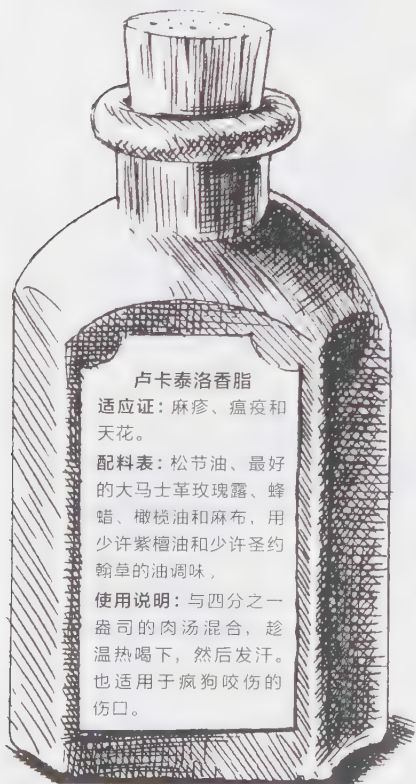 卢卡泰洛香脂
适应证：麻疹、瘟疫和
天花。
配料表：松节油、最好
的大马士革玫瑰露、蜂
蜡、橄榄油和麻布，用
少许紫檀油和少许圣约
翰草的油调味，
使用说明：与四分之一
盎司的肉汤混合，趁
温热喝下，然后发汗。
也适用于疯狗咬伤的
伤口。